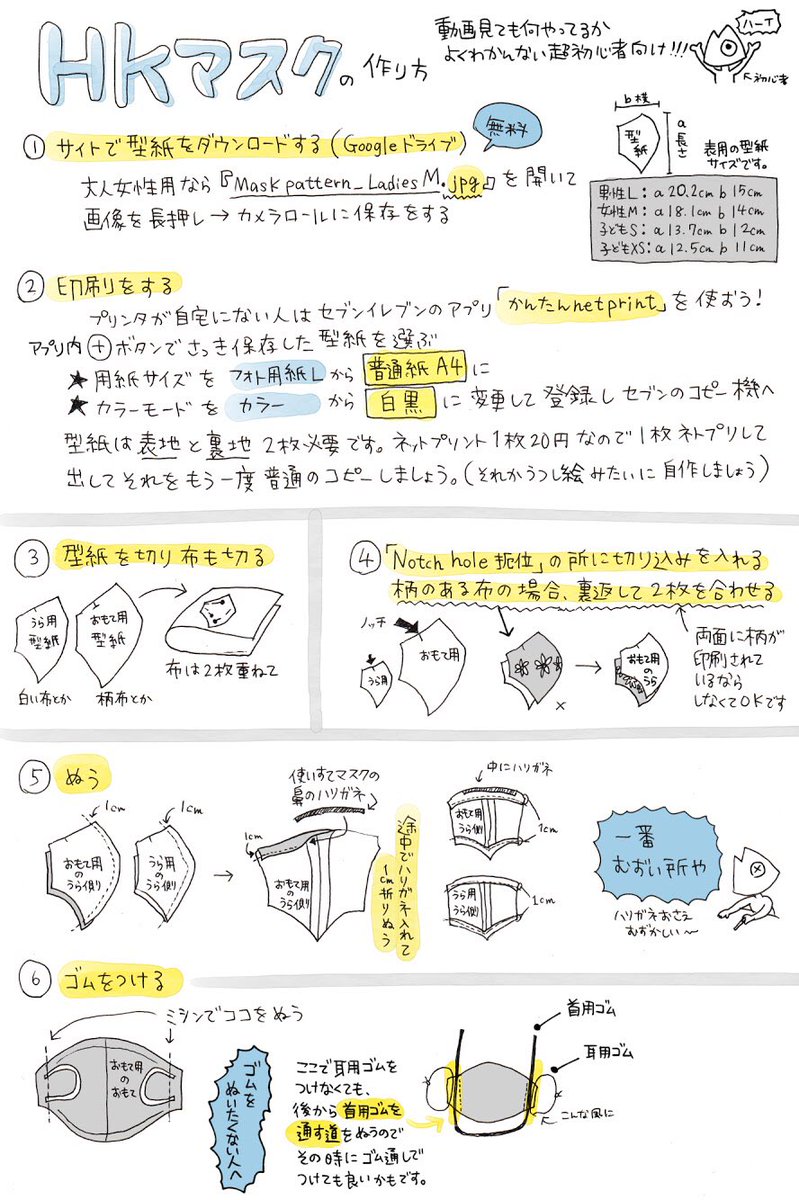 HKマスクの作り方
動画見ても何やってるか
よくわかんない超初心者向け!!!
ハーイ
初心者
① サイトで型紙をダウンロードする(Googleドライブ)
無料
大人女性用なら『Mask pattern_Ladies M.jpg』を開いて
画像を長押し→カメラロールに保存をする
b 横
a 長さ
型紙
表用の型紙
サイズです。
男性L:a 20.2cm b 15cm
女性M:a 18.1cm b 14cm
子どもS:a 13.7cm b 12cm
子どもXS:a 12.5cm b 11cm
② 印刷をする
プリンタが自宅にない人はセブンイレブンのアプリ「かんたんnetprint」を使おう!
アプリ内⊕ボタンでさっき保存した型紙を選ぶ
★用紙サイズを フォト用紙L から 普通紙A4 に
★カラーモードを カラー から 白黒 に変更して登録しセブンのコピー機へ
型紙は表地と裏地2枚必要です。ネットプリント1枚20円なので1枚ネトプリして
出してそれをもう一度普通のコピーしましょう。(それかうつし絵みたいに自作しましょう)
③ 型紙を切り布も切る
うら用
型紙
おもて用
型紙
白い布とか
柄布とか
布は2枚重ねて
④「Notch hole 扼位」の所に切り込みを入れる
柄のある布の場合、裏返して2枚を合わせる
ノッチ
うら用
おもて用
×
おもて用
のうら
両面に柄が
印刷されて
いるなら
しなくてOKです
⑤ ぬう
1cm
1cm
おもて用
のうら側
うら用
のうら側
使いすてマスクの
鼻のハリガネ
1cm
おもて用の
うら側
途中でハリガネ入れて
1cm折りぬう
中にハリガネ
おもて用
うら側
1cm
うら用
うら側
1cm
一番
むずい所や
ハリガネおさえ
むずかしい〜
⑥ ゴムをつける
ミシンでココをぬう
おもて用
の
おもて
ゴムを
ぬいたくない人へ
ここで耳用ゴムを
つけなくても、
後から首用ゴムを
通す道をぬうので
その時にゴム通しで
つけても良いかもです。
首用ゴム
耳用ゴム
こんな風に